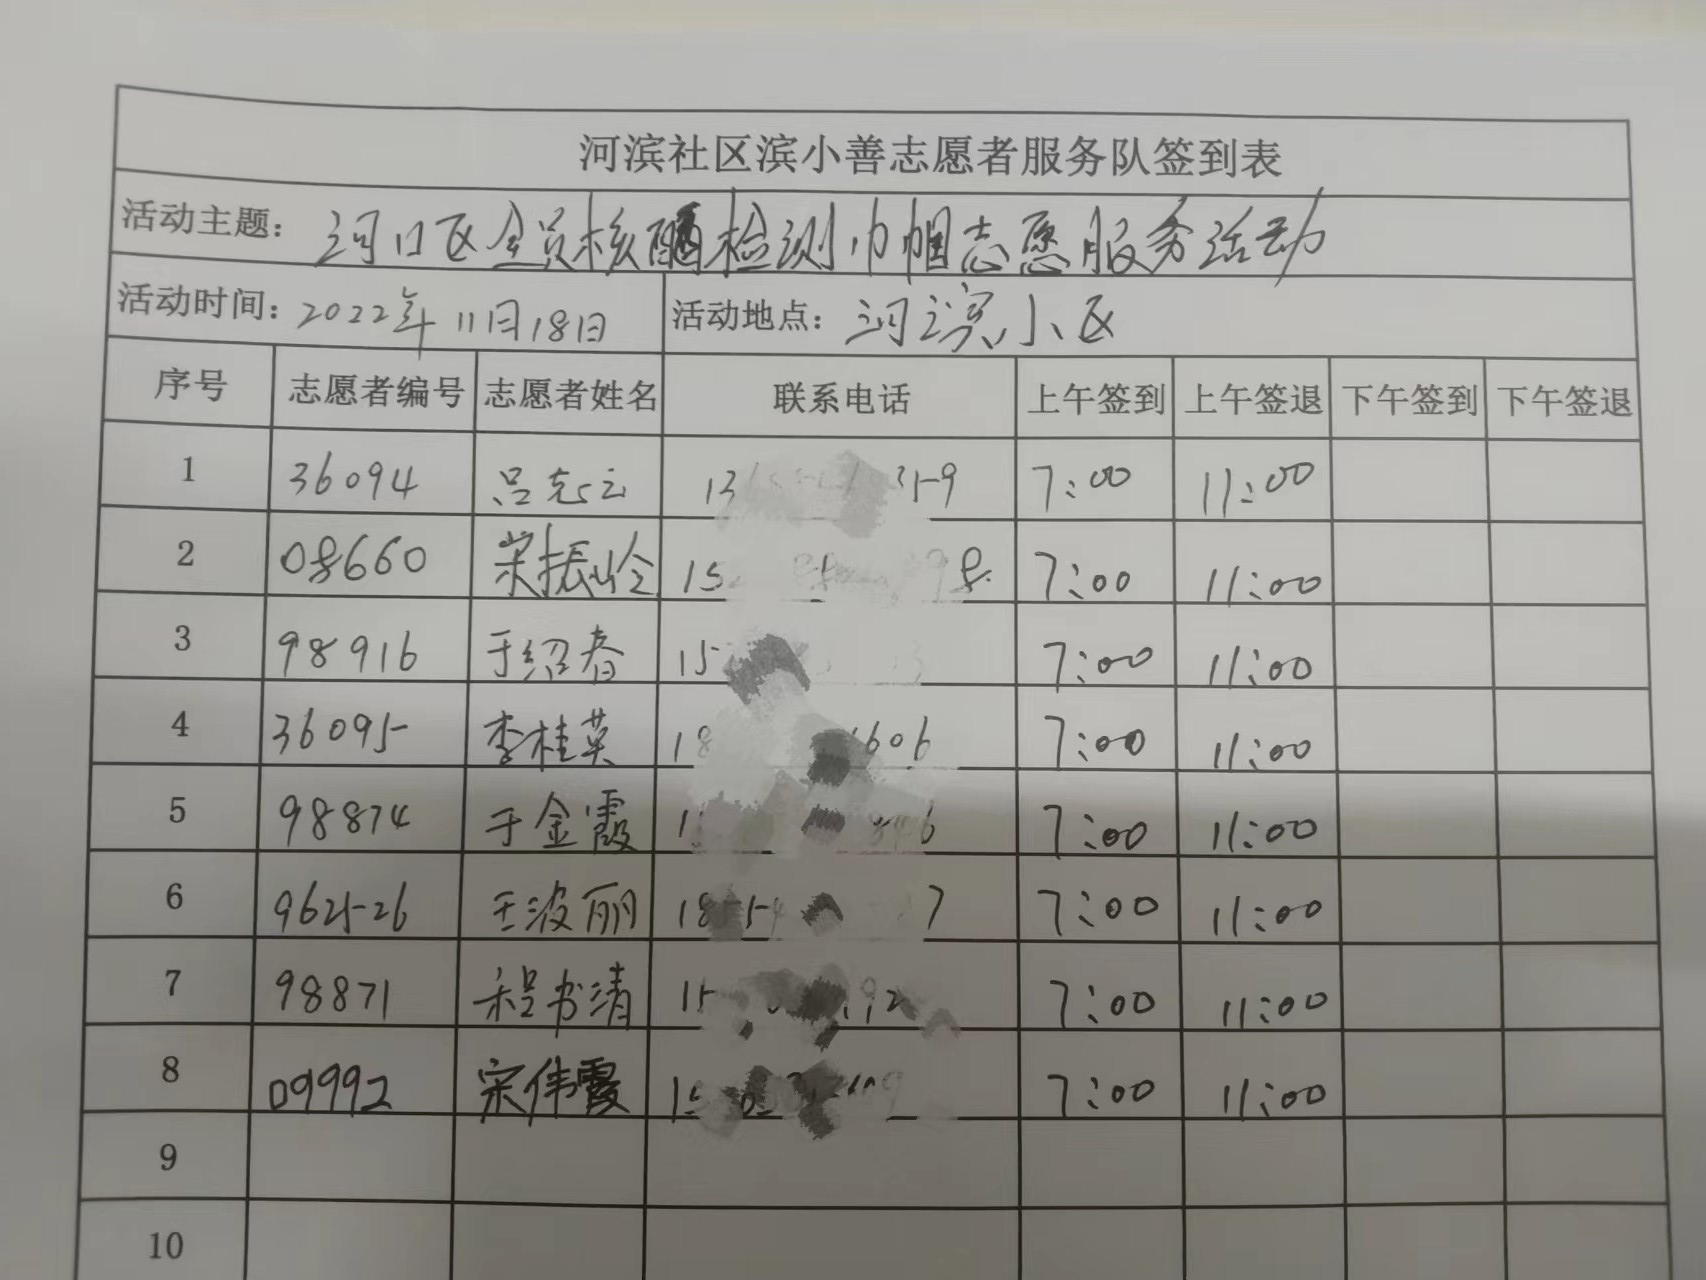 河滨社区滨小善志愿者服务队签到表
活动主题： 河口区全员核酸检测巾帼志愿服务活动
活动时间：2022年11月18日 活动地点：河滨小区
序号 志愿者编号 志愿者姓名 联系电话 上午签到 上午签退 下午签到 下午签退
1 36094 吕克云 7:00 11:00
2 08660 宋振岭 7:00 11:00
3 98916 于绍春 7:00 11:00
4 36095 李桂英 7:00 11:00
5 98874 于金霞 7:00 11:00
6 962526 王波丽 7:00 11:00
7 98871 程书清 7:00 11:00
8 09992 宋伟霞 7:00 11:00
9
10